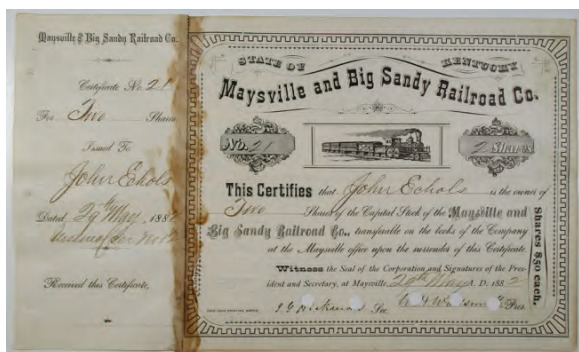 Maysville & Big Sandy Railroad Co.
Certificate No. 21
For Two Shares
Issued To
John Echols
Dated 29th May, 1882
Received this Certificate,
STATE OF KENTUCKY
Maysville and Big Sandy Railroad Co.
No. 21
2 Shares
This Certifies that John Echols is the owner of
Two Shares of the Capital Stock of the Maysville and
Big Sandy Railroad Co., transferable on the books of the Company
at the Maysville office upon the surrender of this Certificate.
Witness the Seal of the Corporation and Signatures of the Pres-
ident and Secretary, at Maysville, 29th May A. D. 1882
Sec. Pres.
Shares $50 each.